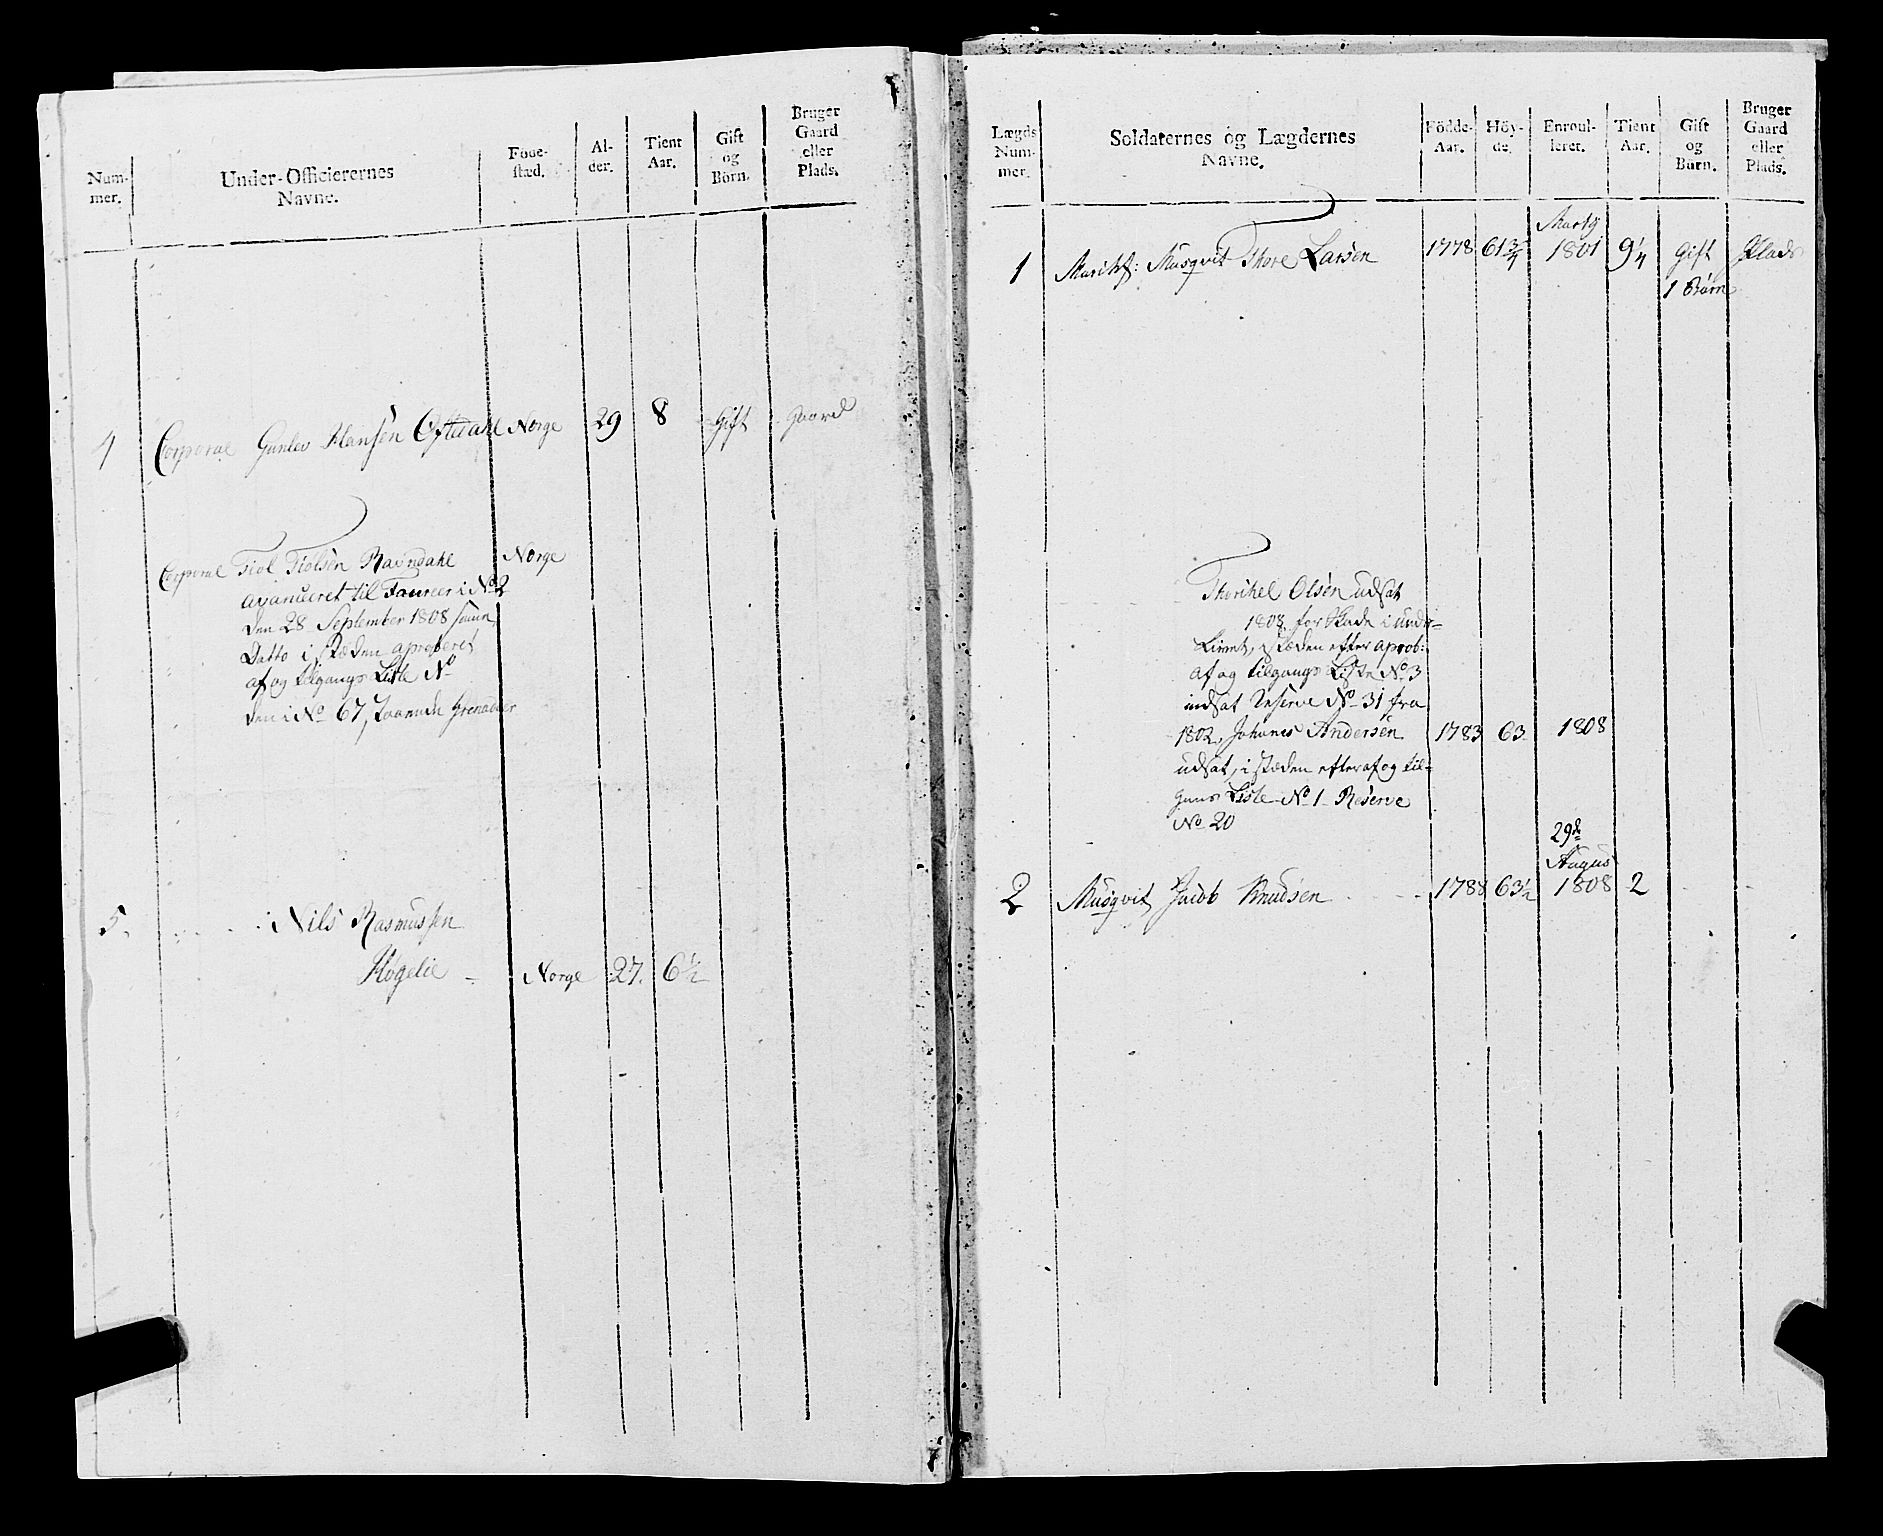 Num-
mer.
Under-Officierernes
Navne.
Föde-
stæd.
Al-
der.
Tient
Aar.
Gift
og
Börn.
Bruger
Gaard
eller
Plads.
4 Corporal Gunlev Hansen Oftedahl Norge 29 8 Gift Gaard
Corporal Tiøl Tiølsen Ravndahl Norge
avanceret til Foureer i No 2
den 28 September 1808 samme
Datto i stæden aproberet
af og tilgangs Liste No
den i No 67, Grenadeer
5. Nils Rasmussen
Høgelie Norge 27. 6½
Lægds
Num-
mer.
Soldaternes og Lægdernes
Navne.
Födde-
Aar.
Höy-
de.
Enroul-
leret.
Tient
Aar.
Gift
og
Börn.
Bruger
Gaard
eller
Plads.
Martz
1 Musqvit Thore Larsen 1778 61¾ 1801 9¼ Gift Plads
1 Barn
Thorikel Olsen udsat
1808 for Skade i under-
Livet, i stæden efter aprob:
af og tilgangs Liste No 3
indsat Reserve No 31 fra
1802, Johanes Andersen 1783 63 1808
udsat, i stæden efter af og til-
gans Liste No 1 Reserve
No 20
29de
Augus
2 Musqvit Jacob Knudsen 1788 63½ 1808 2